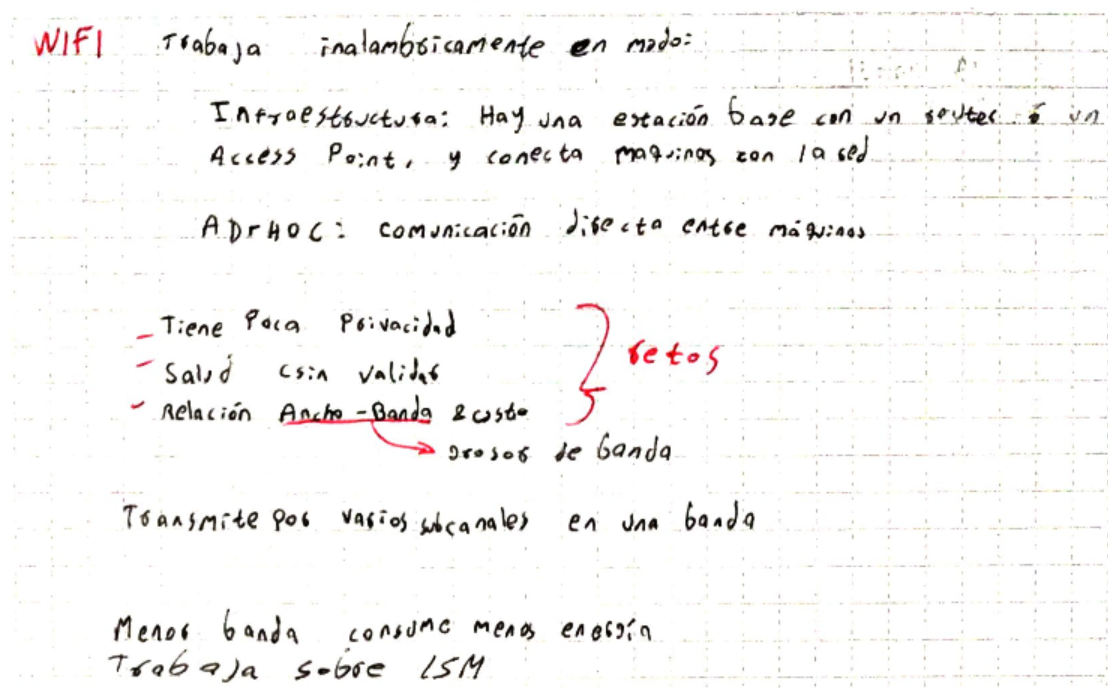 WIFI Trabaja inalambricamente en modo:
Infraestructura: Hay una estación base con un router ó un
Access Point, y conecta maquinas con la red
AD-HOC: comunicación directa entre máquinas
- Tiene Poca Privacidad
- Salud (sin validar
- Relación Ancho-Banda & costo
retos
grosor de banda
Transmite por varios subcanales en una banda
Menor banda consume menos energía
Trabaja sobre ISM